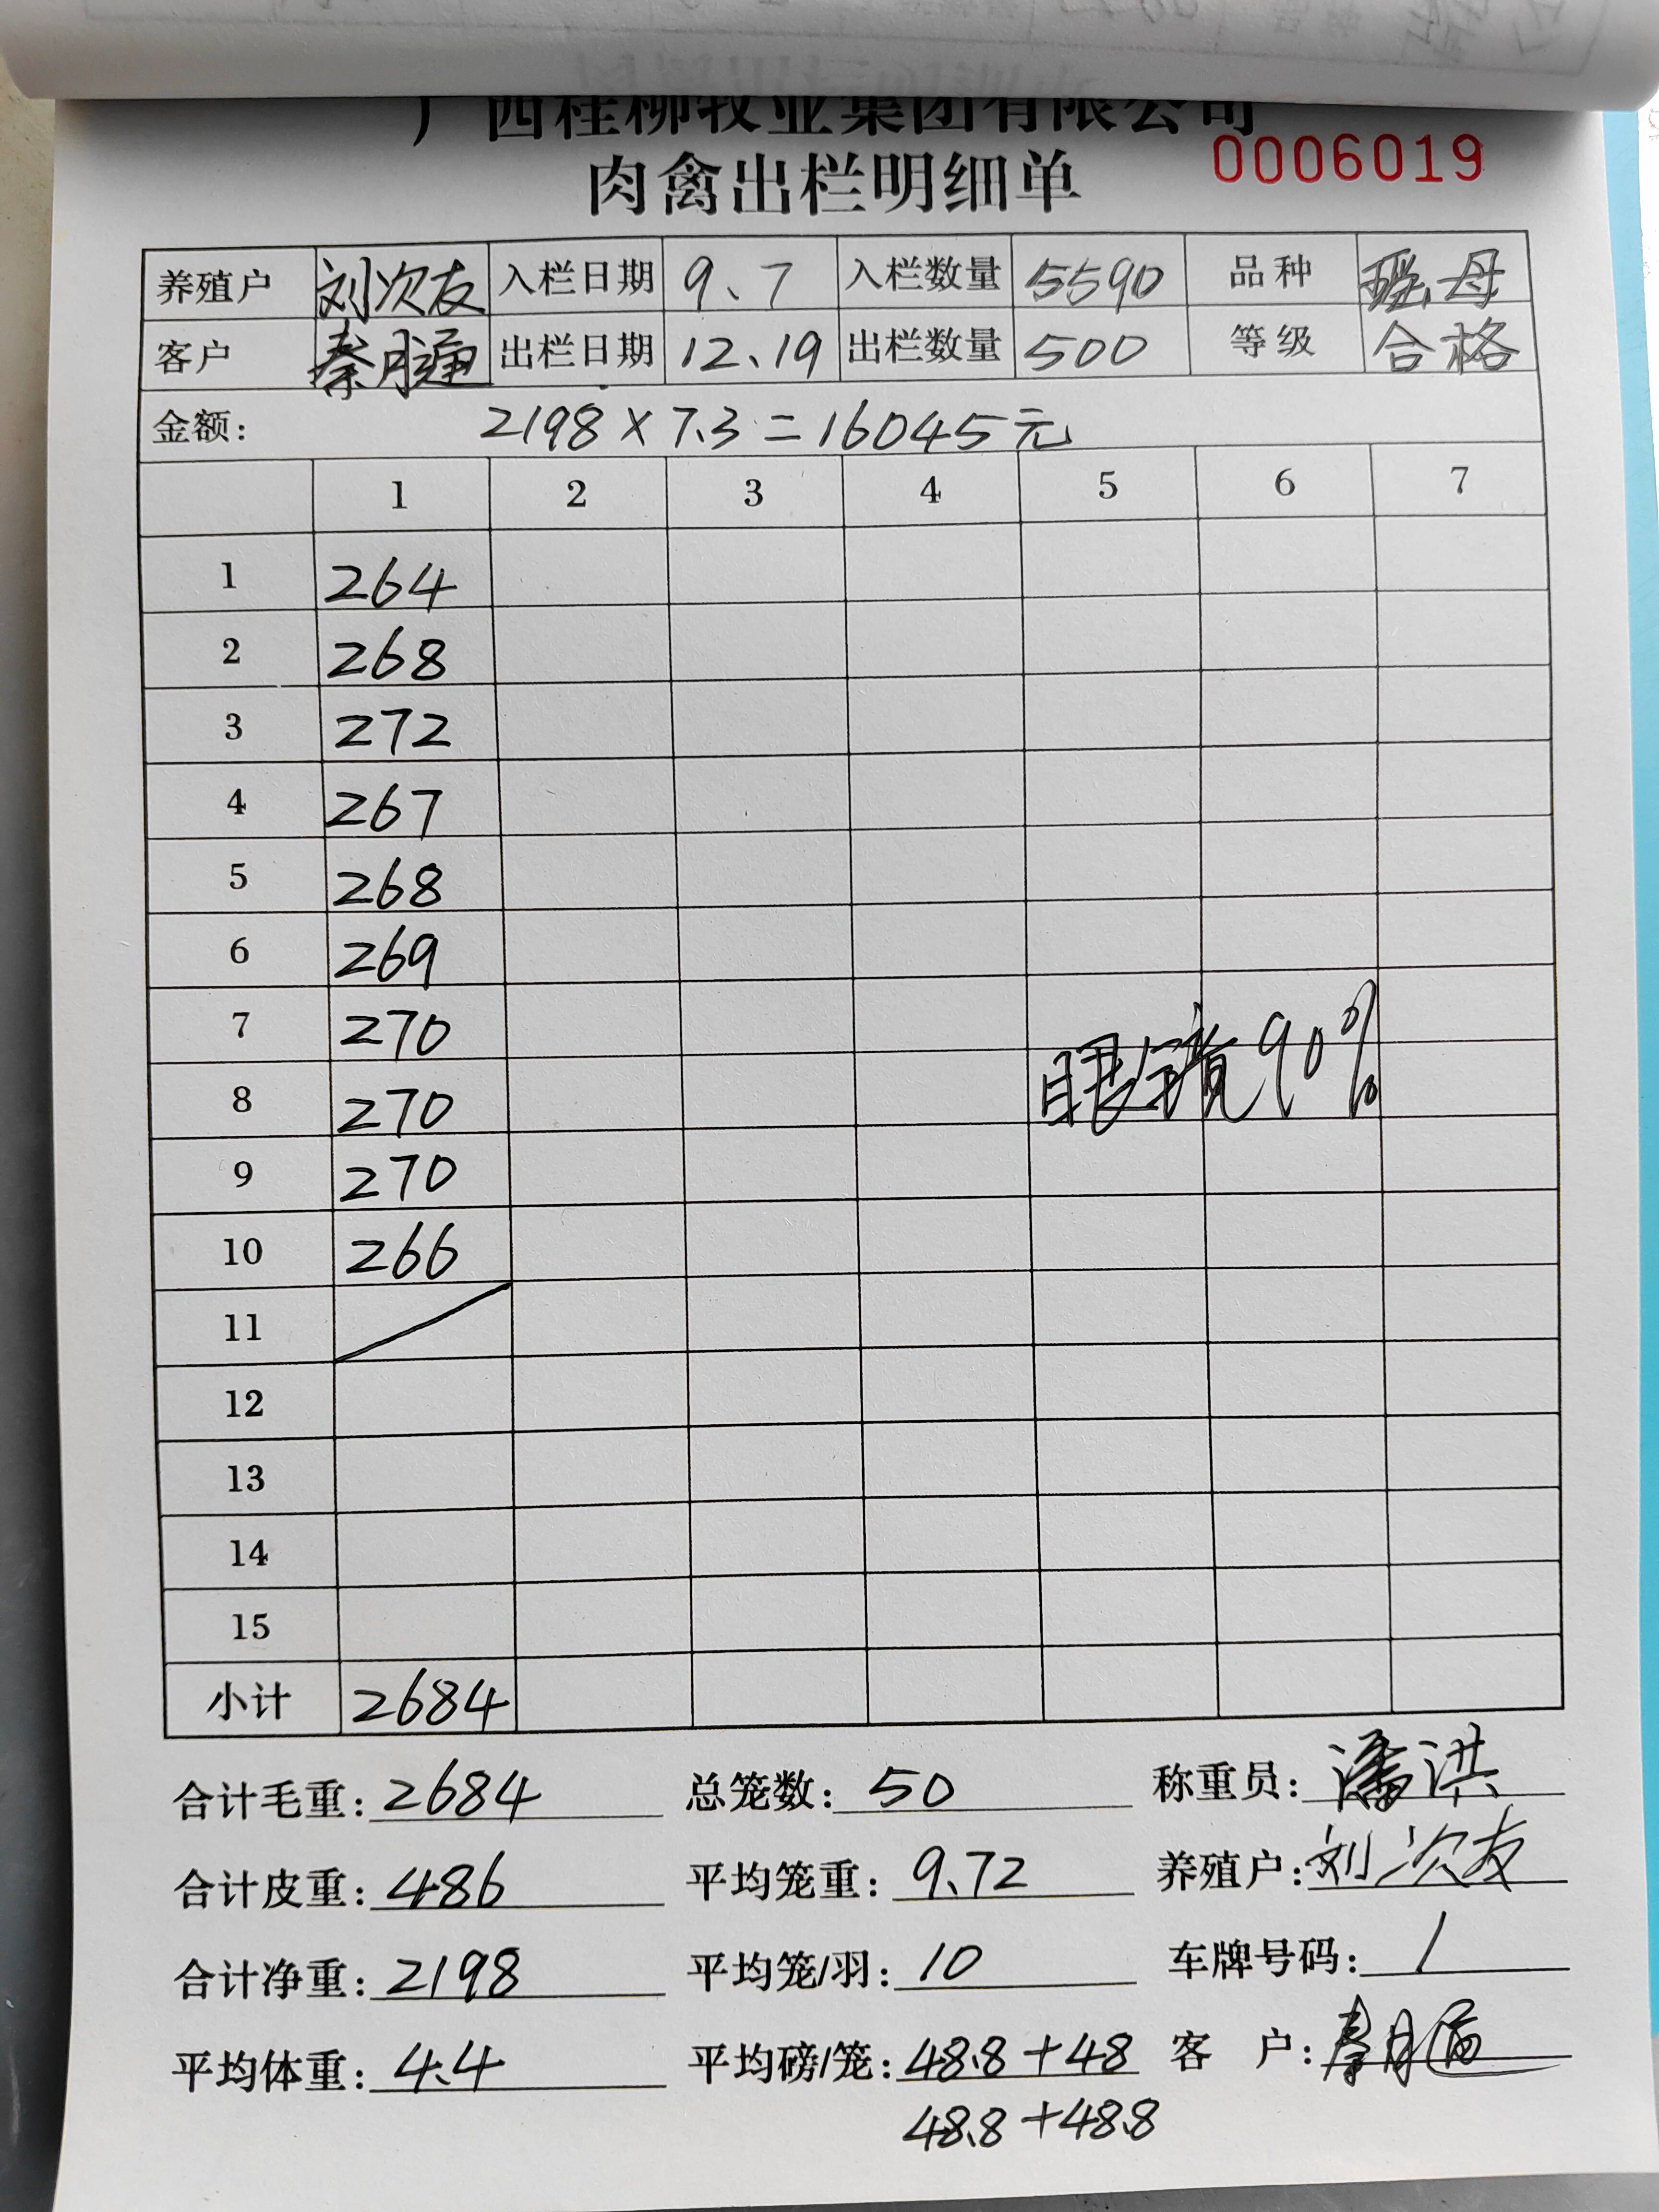 广西桂柳牧业集团有限公司
肉禽出栏明细单 0006019
养殖户 刘次友 入栏日期 9、7 入栏数量 5590 品种 瑶母
客户 出栏日期 12、19 出栏数量 500 等级 合格
金额: 2198×7.3=16045元
1 2 3 4 5 6 7
1 264
2 268
3 272
4 267
5 268
6 269
7 270
8 270 眼镜90%
9 270
10 266
11
12
13
14
15
小计 2684
合计毛重: 2684 总笼数: 50 称重员: 潘洪
合计皮重: 486 平均笼重: 9.72 养殖户: 刘次友
合计净重: 2198 平均笼/羽: 10 车牌号码: /
平均体重: 4.4 平均磅/笼: 48.8+48 客 户:
48.8+48.8